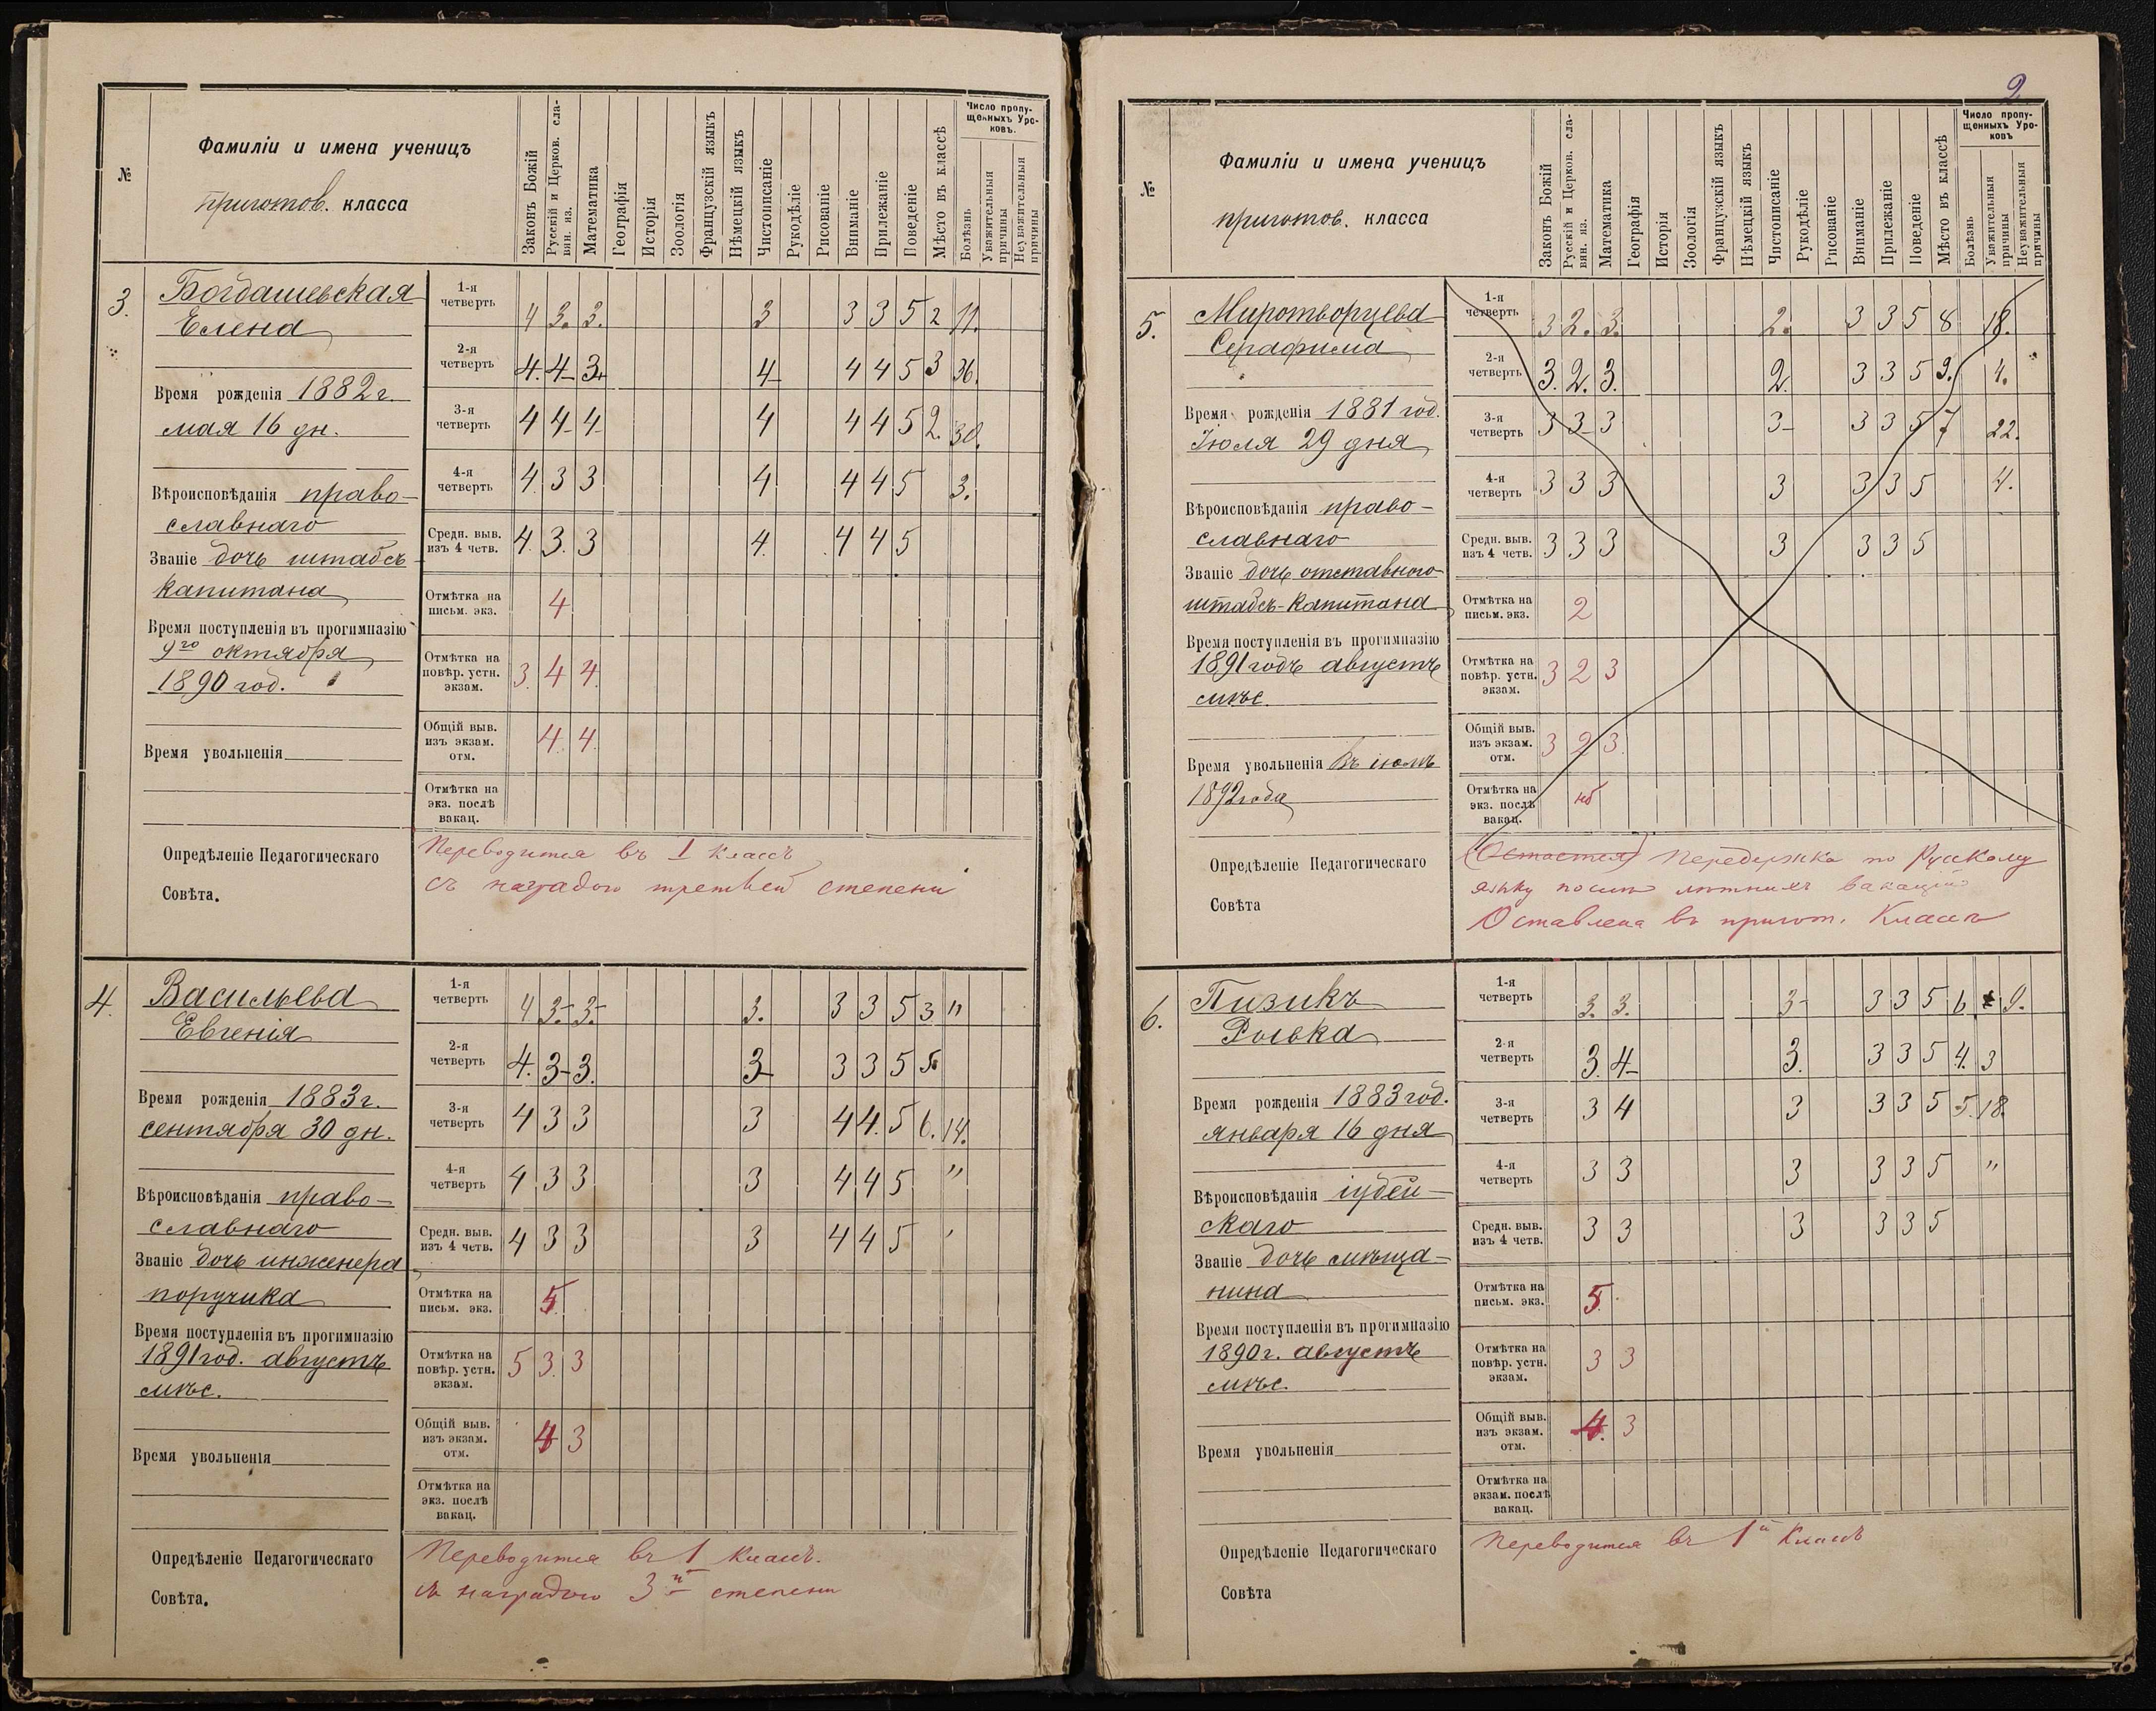 Фамиліи и имена ученицъ
№
приготов. класса
Законъ Божій
Русскій и Церков. сла-
вян. яз.
Математика
Географія
Исторія
Зоологія
Французскій языкъ
Нѣмецкій языкъ
Чистописаніе
Рукодѣліе
Рисованіе
Вниманіе
Прилежаніе
Поведеніе
Мѣсто въ классѣ
Число пропу-
щенныхъ Уро-
ковъ.
Болѣзнь
Уважительныя
причины
Неуважительныя
причины
3.
Богдашевская
Елена
Время рожденія 1882 г.
мая 16 дн.
Вѣроисповѣданія право-
славнаго
Званіе дочь штабсъ-
капитана
Время поступленія въ прогимназію
9го октября
1890 год.
Время увольненія
1-я четверть 4 3. 3. 3 3 3 5 2 11.
2-я четверть 4. 4 3 4 4 4 5 3 36.
3-я четверть 4 4 4 4 4 4 5 2. 30.
4-я четверть 4 3 3 4 4 4 5 3.
Средн. выв. изъ 4 четв. 4. 3. 3 4. 4 4 5
Отмѣтка на письм. экз. 4
Отмѣтка на повѣр. устн. экзам. 3. 4 4.
Общій выв. изъ экзам. отм. 4. 4.
Отмѣтка на экз. послѣ вакац.
Опредѣленіе Педагогическаго
Совѣта.
Переводится въ I классъ
съ наградою третьей степени
4.
Васильева
Евгенія
Время рожденія 1883 г.
сентября 30 дн.
Вѣроисповѣданія право-
славнаго
Званіе дочь инженера
поручика
Время поступленія въ прогимназію
1891 год. августъ
мѣс.
Время увольненія
1-я четверть 4 3- 3- 3. 3 3 5 3 "
2-я четверть 4. 3- 3. 3 3 3 5 5
3-я четверть 4 3 3 3 4 4. 5 6. 14.
4-я четверть 4 3 3 3 4 4 5 "
Средн. выв. изъ 4 четв. 4 3 3 3 4 4 5
Отмѣтка на письм. экз. 5.
Отмѣтка на повѣр. устн. экзам. 5 3. 3
Общій выв. изъ экзам. отм. 4 3
Отмѣтка на экз. послѣ вакац.
Опредѣленіе Педагогическаго
Совѣта.
Переводится въ 1 классъ.
съ наградою 3й степени
2
Фамиліи и имена ученицъ
№
приготов. класса
Законъ Божій
Русскій и Церков. сла-
вян. яз.
Математика
Географія
Исторія
Зоологія
Французскій языкъ
Нѣмецкій языкъ
Чистописаніе
Рукодѣліе
Рисованіе
Вниманіе
Прилежаніе
Поведеніе
Мѣсто въ классѣ
Число пропу-
щенныхъ Уро-
ковъ
Болѣзнь
Уважительныя
причины
Неуважительныя
причины
5.
Миротворцева
Серафима
Время рожденія 1881 год.
Іюля 29 дня
Вѣроисповѣданія право-
славнаго
Званіе дочь отставного
штабсъ-капитана
Время поступленія въ прогимназію
1891 годъ августъ
мѣс.
Время увольненія въ іюлѣ
1892 года
1-я четверть 3 2. 3. 2. 3 3 5 8 18.
2-я четверть 3. 2. 3. 2. 3 3 5 9. 4.
3-я четверть 3 3 3 3- 3 3 5 7 22.
4-я четверть 3 3 3 3 3 3 5 4.
Средн. выв. изъ 4 четв. 3 3 3 3 3 3 5
Отмѣтка на письм. экз. 2
Отмѣтка на повѣр. устн. экзам. 3 2 3
Общій выв. изъ экзам. отм. 3 2 3.
Отмѣтка на экз. послѣ вакац. нб
Опредѣленіе Педагогическаго
Совѣта
(Остается) Передержка по Русскому
языку послѣ лѣтнихъ вакацій
Оставлена въ пригот. классѣ
6.
Пизикъ
Ровка
Время рожденія 1883 год.
января 16 дня
Вѣроисповѣданія іудей-
скаго
Званіе дочь мѣща-
нина
Время поступленія въ прогимназію
1890 г. августъ
мѣс.
Время увольненія
1-я четверть 3. 3. 3- 3 3 5 6 9.
2-я четверть 3. 4- 3. 3 3 5 4. 3
3-я четверть 3 4 3 3 3 5 5. 18.
4-я четверть 3 3 3 3 3 5 "
Средн. выв. изъ 4 четв. 3 3 3 3 3 5
Отмѣтка на письм. экз. 5.
Отмѣтка на повѣр. устн. экзам. 3 3
Общій выв. изъ экзам. отм. 4. 3
Отмѣтка на экзам. послѣ вакац.
Опредѣленіе Педагогическаго
Совѣта
Переводится въ 1й классъ